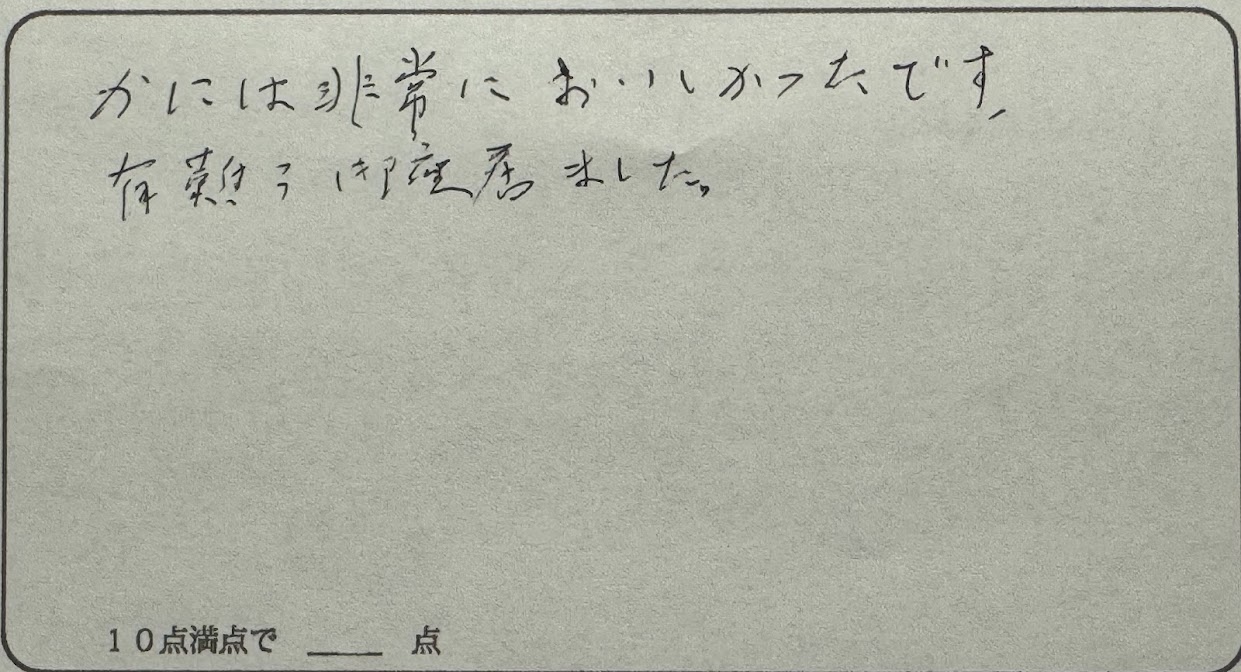 かには非常においしかったです、
有難う御座居ました。
10点満点で ____ 点